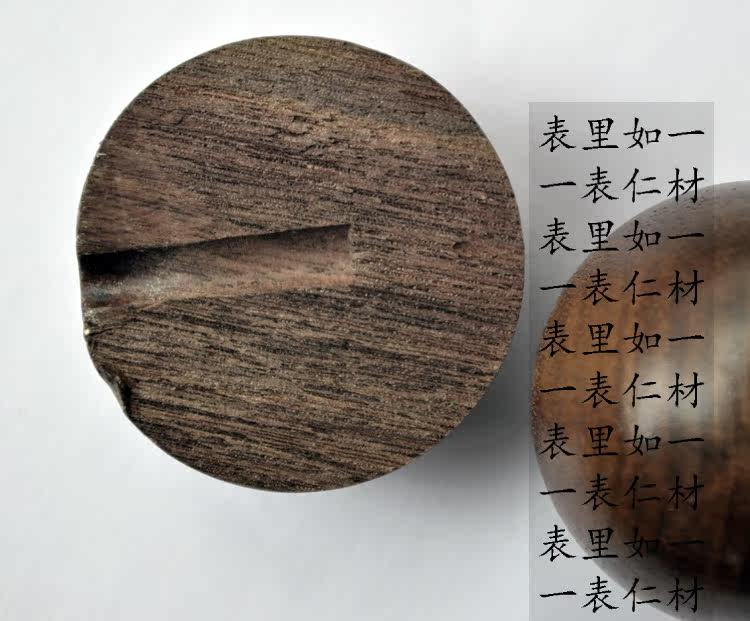 表里如一
一表仁材
表里如一
一表仁材
表里如一
一表仁材
表里如一
一表仁材
表里如一
一表仁材